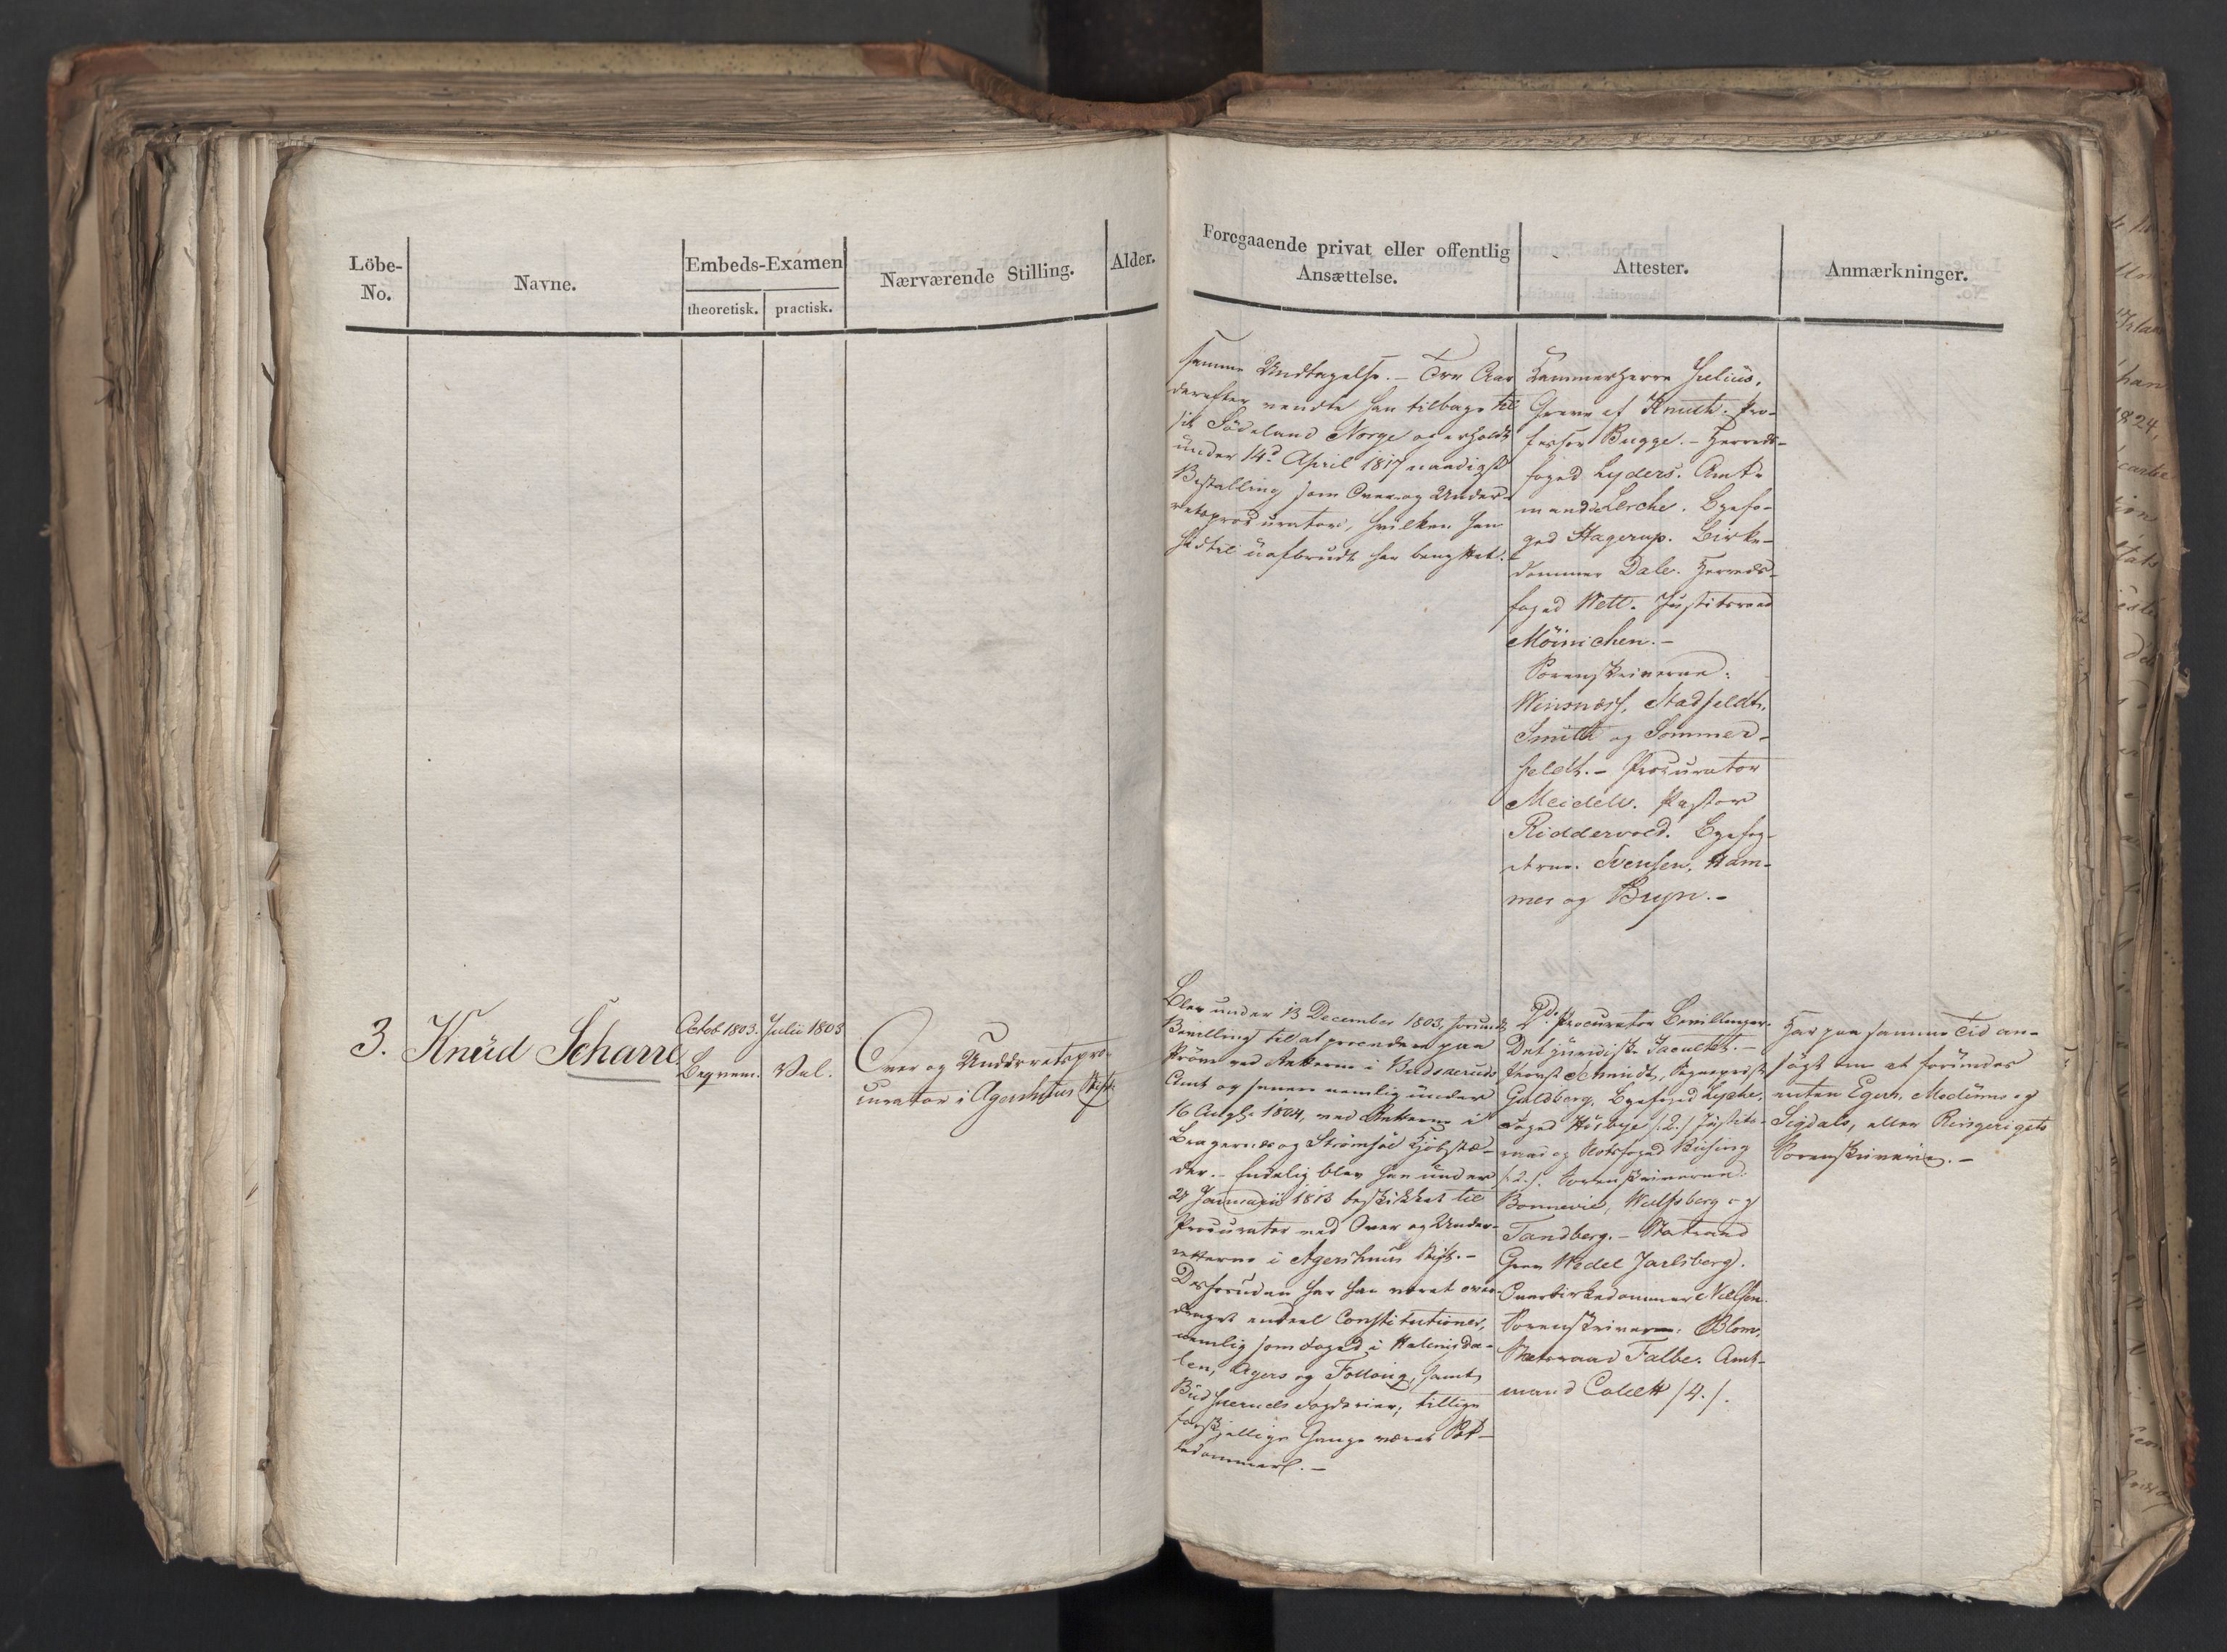 Löbe-
No.
Navne.
Embeds-Examen
theoretisk.
practisk.
Nærværende Stilling.
Alder.
Foregaaende privat eller offentlig
Ansættelse.
Attester.
Anmærkninger.
samme Undtagelse. – Tre Aar
derefter vendte han tilbage til
sit Födeland Norge og erholdt
under 14d April 1817 naadigst
Bestalling som Over og Under-
retsprocurator, hvilken han
hidtil uafbrudt har benyttet.
Kammerherre Julius,
Greve af Knuth. Pro-
fessor Bugge. – Herreds-
foged Lyders. Amt-
mand Lerche. Byefo-
ged Hagerup. Birke-
dommer Dale. Herreds-
foged Wett. Justitsraad
Möinichen. –
Sorenskriverne:
Winsnæss, Stadfeldt,
Smith og Sommer-
feldt. – Procurator
Meidell. Pastor
Riddervold. Byefog-
derne Svensen, Ham-
mer og Bryn. –
3.
Knud Scharre
Octob. 1803.
Beqvem.
Julii 1803
Vel.
Over og Underretspro-
curator i Agershuus Stift
Blev under 13 December 1803, forundt
Bevilling til at procedere paa
Pröve ved Retterne i Budskeruds
Amt og senere nemlig under
16 Augt. 1804, ved Retterne i
Bragernæs og Strömsöe Kjöbstæ-
der. – Endelig blev han under
21 Januarii 1813 beskikket til
Procurator ved Over og Under-
retterne i Agershuus Stift. –
Desforuden har han været over-
draget endeel Constitutioner,
nemlig som Foged i Hallingda-
len, Agers og Folloug, samt
Budskeruds Fogderier; tillige
forskjellige Gange været Sæt-
tedommer. –
2de Procurator Bevillinger.
Det juridiske Facultet. –
Provst Schmidt,
Guldberg. Byefoged Lyche.
Foged Husebye /2./ Justits-
raad og Slotsfoged Büsing
/2./. Sorenskriverne:
Bonnevie, Wulfsberg og
Tandberg. – Statsraad
Grev Wedel Jarlsberg.
Overbirkedommer Nielsen.
Sorenskriver Blom,
Statsraad Falbe. Amt-
mand Collett /4./.
Har paa samme Tid an-
sögt om at forundes
enten Egers, Modums og
Sigdals, eller Ringerigets
Sorenskriverie. –